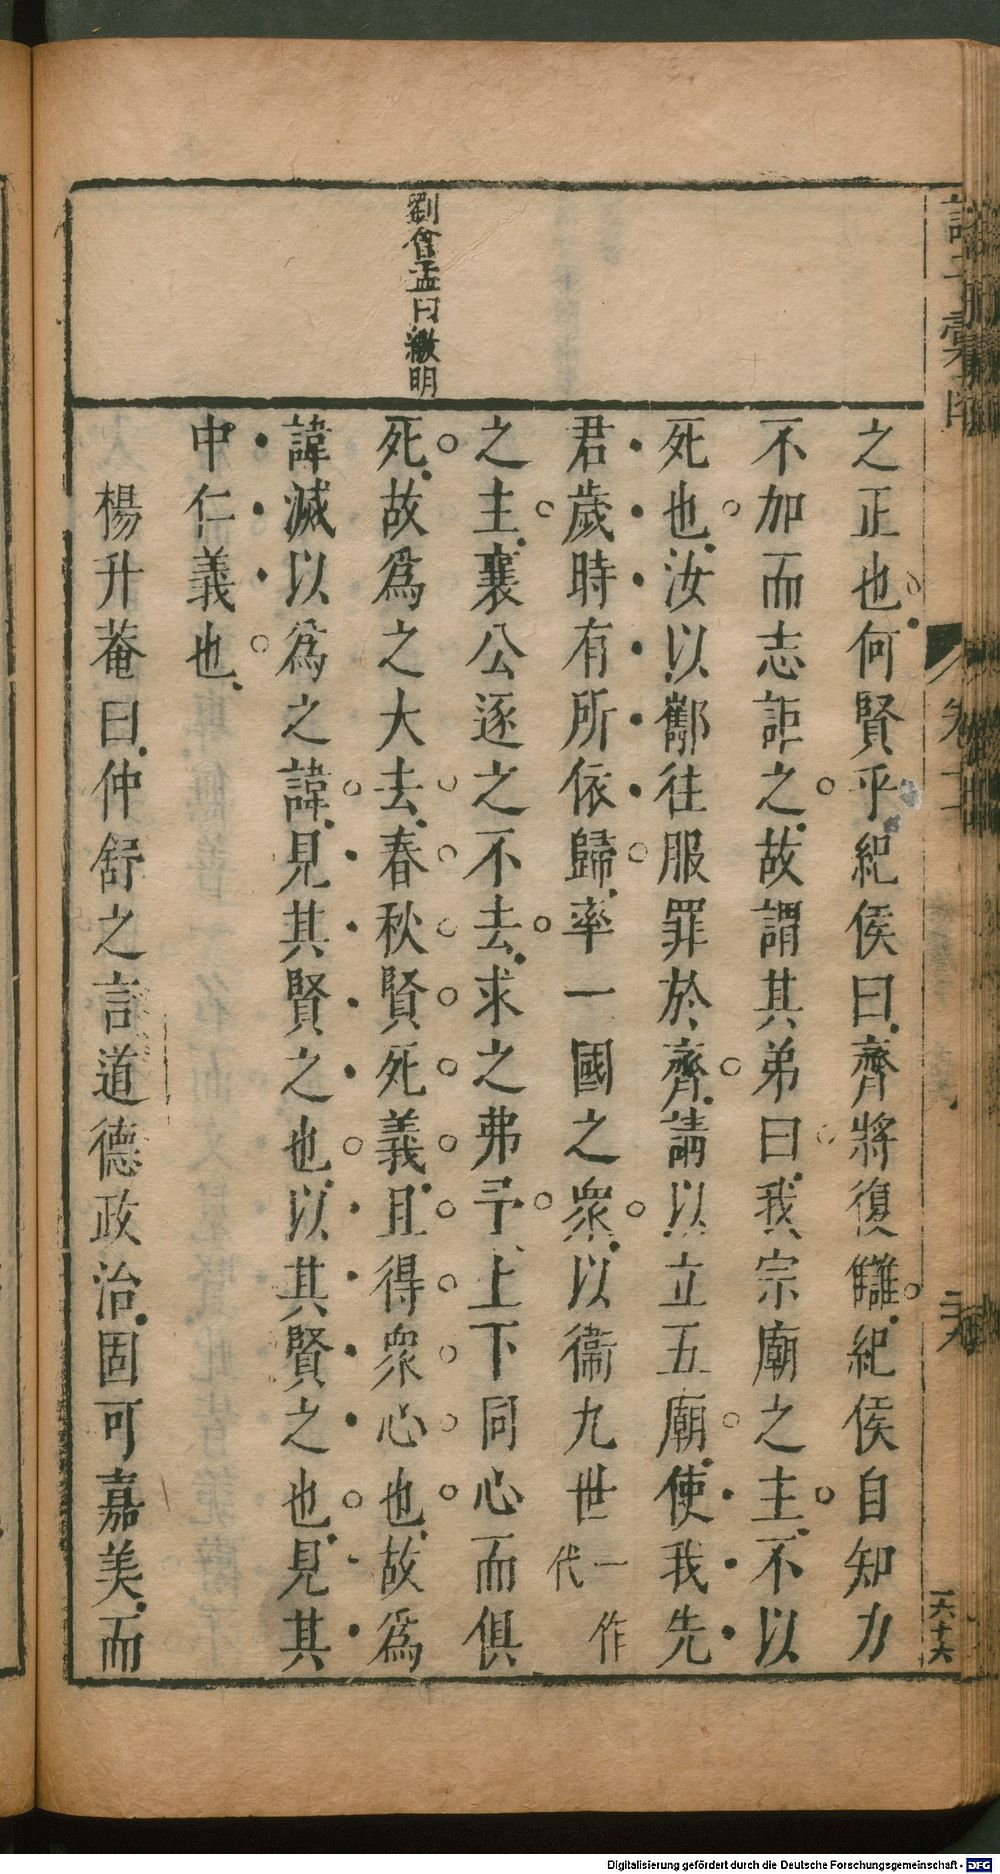 劉會孟曰激明
之正也何賢乎紀侯曰齊將復讎紀侯自知力
不加而志詎之故謂其弟曰我宗廟之主不以
死也汝以酅往服罪於齊請以立五廟使我先
君歲時有所依歸率一國之衆以衞九世一作代
之主襄公逐之不去求之弗予上下同心而俱
死故爲之大去春秋賢死義且得衆心也故爲
諱滅以爲之諱見其賢之也以其賢之也見其
中仁義也
楊升菴曰仲舒之言道德政治固可嘉美而
一六十六
Digitalisierung gefördert durch die Deutsche Forschungsgemeinschaft - DFG